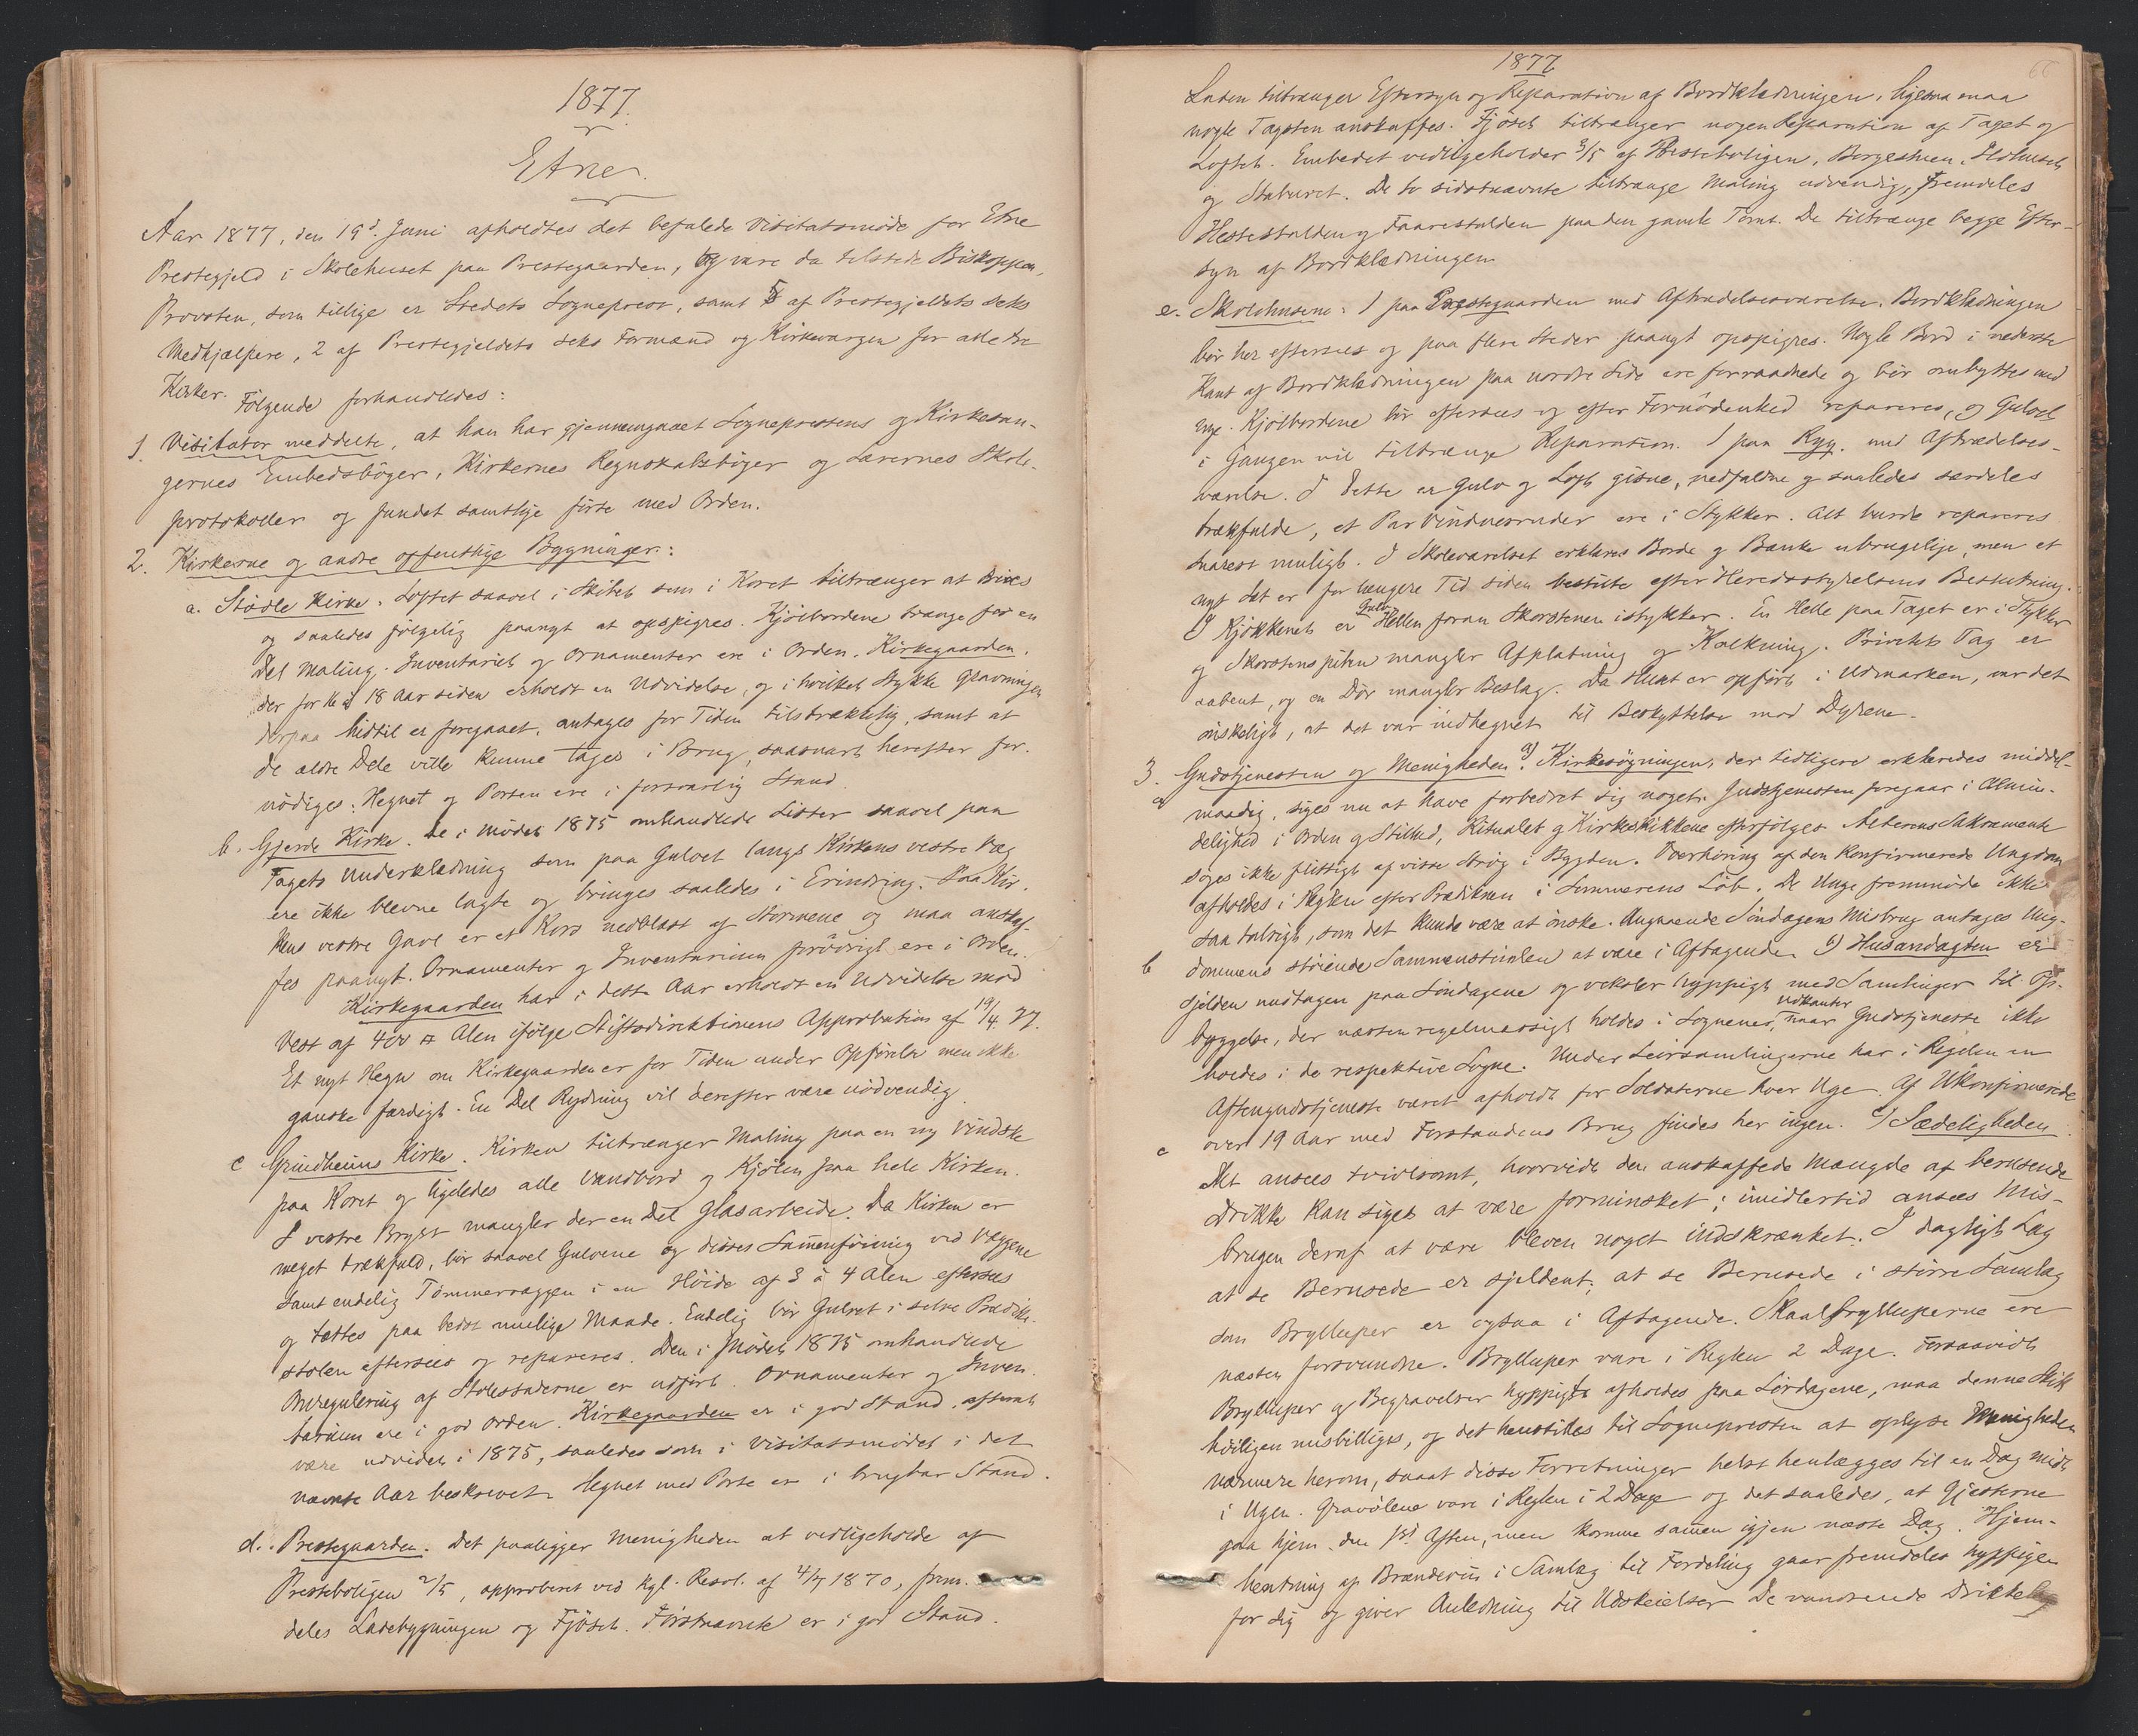 1877.
Etne.
Aar 1877, den 19d. Juni afholdtes det befalede Visitatsmöde for Etne
Prestegjeld i Skolehuset paa Prestegaarden, og vare da tilstede Biskoppen,
Provsten, som tillige er Stedets Sogneprest, samt 5 af Prestegjeldets seks
Medhjælpere, 2 af Prestegjeldets seks Formænd og Kirkevargen for alle tre
Kirker. Fölgende forhandledes:
1. Visitator meddelte, at han har gjennemgaaet Sogneprestens og Kirkesan-
gernes Embedsböger, Kirkernes Regnskabsböger og Lærernes Skole-
protokoller og fundet samtlige förte med Orden.
2. Kirkerne og andre offentlige Bygninger:
a. Stödle Kirke. Loftet saavel i Skibet som i Koret tiltrænger at
og saaledes fölgelig paanyt at opspigres. Kjölbordene trænge for en
Del Maling. Inventariet og Ornamenter ere i Orden. Kirkegaarden,
der for 16 à 18 Aar siden erholdt en Udvidelse, og i hvilket Stykke Gravningen
derpaa hidtil er foregaaet, antages for Tiden tilstrækkelig, samt at
de ældre Dele ville kunne tages i Brug, saasnart herefter for-
nödiges. Hegnet og Porten ere i forsvarlig Stand.
b. Gjerde Kirke. De i Mödet 1875 omhandlede Lister saavel paa
Tagets Underklædning som paa Gulvet langs Kirkens vestre Væg
ere ikke blevne lagte og bringes saaledes i Erindring. Paa Kir-
kens vestre Gavl er et Kors nedblæst af Stormene og maa anskaf-
fes paanyt. Ornamenter og Inventarium forövrigt ere i Orden.
Kirkegaarden har i dette Aar erholdt en Udvidelse mod
Vest af 400 □ Alen ifölge Stiftsdirektionens Approbation af 19/4 77.
Et nyt Hegn om Kirkegaarden er for Tiden under Opförelse men ikke
ganske færdigt. En Del Rydning vil derefter være nödvendig.
c Grindheims Kirke. Kirken tiltrænger Maling paa en ny Vindske
paa Koret og ligeledes alle Vandbord og Kjölen paa hele Kirken.
I vestre Bryst mangler der en Del Glasarbeide. Da Kirken er
meget trækfuld, bör saavel Gulvene og disses Sammenföining ved Væggene
samt endelig Tömmervæggen i en Höide af 3 à 4 Alen eftersees
og tættes paa bedst mulige Maade. Endelig bör Gulvet i selve Prædike-
stolen eftersees og repareres. Den i Mödet 1875 omhandlede
Omregulering af Stolestaderne er udfört. Ornamenter og Inven-
tarium ere i god Orden. Kirkegaarden er i god Stand, efterat
være udvidet i 1875, saaledes som i Visitatsmödet i det
nævnte Aar beskrevet. Hegnet med Porte er i brugbar Stand.
d. Prestegaarden. Det paaligger Menigheden at vedligeholde af
Presteboligen 2/5, approberet ved Kgl. Resol. af 4/7 1870, frem-
deles Ladebygningen og Fjöset. Förstnævnte er i god Stand.
1877
66
Laden tiltrænger Eftersyn og Reparation af Bordklædningen, ligesaa maa
nogle Tagsten anskaffes. Fjöset tiltrænger nogen Reparation af Taget og
Loftet. Embedet vedligeholder 3/5 af Presteboligen, Borgestuen, Ildhuset
og Stabburet. De to sidstnævnte tiltrænge Maling udvendig, fremdeles
Hestestalden og Faarestalden paa den gamle Tomt. De tiltrænge begge Efter-
syn af Bordklædningen.
e. Skolehusene: 1 paa Prestegaarden med Aftrædelsesværelse. Bordklædningen
bör her eftersees og paa flere Steder paanyt opspigres. Nogle Bord i nederste
Kant af Bordklædningen paa nordre Side ere forraadnede og bör ombyttes med
nye. Kjölbordene bör eftersees og efter Fornödenhed repareres, og Gulvet
i Gangen vil tiltrænge Reparation. 1 paa Ryg. med Aftrædelses-
værelse. I dette er Gulv og Loft gisne, nedfaldne og saaledes særdeles
trækfulde, et Par Vinduesruder ere i Stykker. Alt burde repareres
snarest muligt. I Skoleværelset erklæres Borde og Bænke ubrugelige, men et
nyt Sæt er for længere Tid siden bestilte efter Heredsstyrelsens Beslutning.
I Kjökkenet er Gulv Hellen foran Skorstenen istykker. En Helle paa Taget er i Stykker
og Skorstenspiben mangler Afpletning og Kalkning. Privetets Tag er
aabent, og en Dör mangler Beslag. Da Huset er opfört i Udmarken, var det
önskeligt, at det var indhegnet til Beskyttelse mod Dyrene.
3. Gudstjenesten og Menigheden. a) Kirkesögningen, der tidligere erklæredes middel-
a maadig, siges nu at have forbedret sig noget. Gudstjenesten foregaar i Almin-
delighed i Orden og Stilhed, Ritualet og Kirkeskikkene efterfölges. Alterens Sakramente
söges ikke flittigt af visse Strög i Bygden. Overhöring af den konfirmerede Ungdom
afholdes i Reglen efter Prædiken i Sommerens Löb. De Unge fremmöde ikke
saa talrigt, som det kunde være at önske. Angaaende Söndagens Misbrug antages Ung-
b dommens störende Sammenstimlen at være i Aftagende. b) Husandagten er
sjelden undtagen paa Söndagene og veksler hyppigt med Samlinger til Op-
byggelse, der næsten regelmæssigt holdes i Sognenes Udkanter, naar Gudstjeneste ikke
holdes i de respektive Sogne. Under Leirsamlingerne har i Reglen en
Aftengudstjeneste været afholdt for Soldaterne hver Uge. Af Ukonfirmerede
c over 19 Aar med Forstandens Brug findes her ingen. c) Sædeligheden.
Det ansees tvivlsomt, hvorvidt den anskaffede Mængde af berusende
Drikke kan siges at være forminsket; imidlertid ansees Mis-
brugen deraf at være bleven noget indskrænket. I dagligt Lag
at se Berusede er sjeldent; at se Berusede i större Samlag
som Brylluper er ogsaa i Aftagende. Skaalbrylluperne ere
næsten forsvundne. Brylluper vare i Reglen 2 Dage. Forsaavidt
Brylluper og Begravelser hyppigst afholdes paa Lördagene, maa denne Skik
höiligen misbilliges, og det henstilles til Sognepresten at oplyse Menigheden
nærmere herom, saaat disse Forretninger helst henlægges til en Dag midt
i Ugen. Gravölene vare i Reglen i 2 Dage og det saaledes, at Gjesterne
gaa hjem den 1ste Aften, men komme sammen igjen næste Dag. Hjem-
hentning af Brændeviin i Samlag til Fordeling gaar fremdeles hyppigen
for sig og giver Anledning til Udskeielser. De vandrende Drikkelag